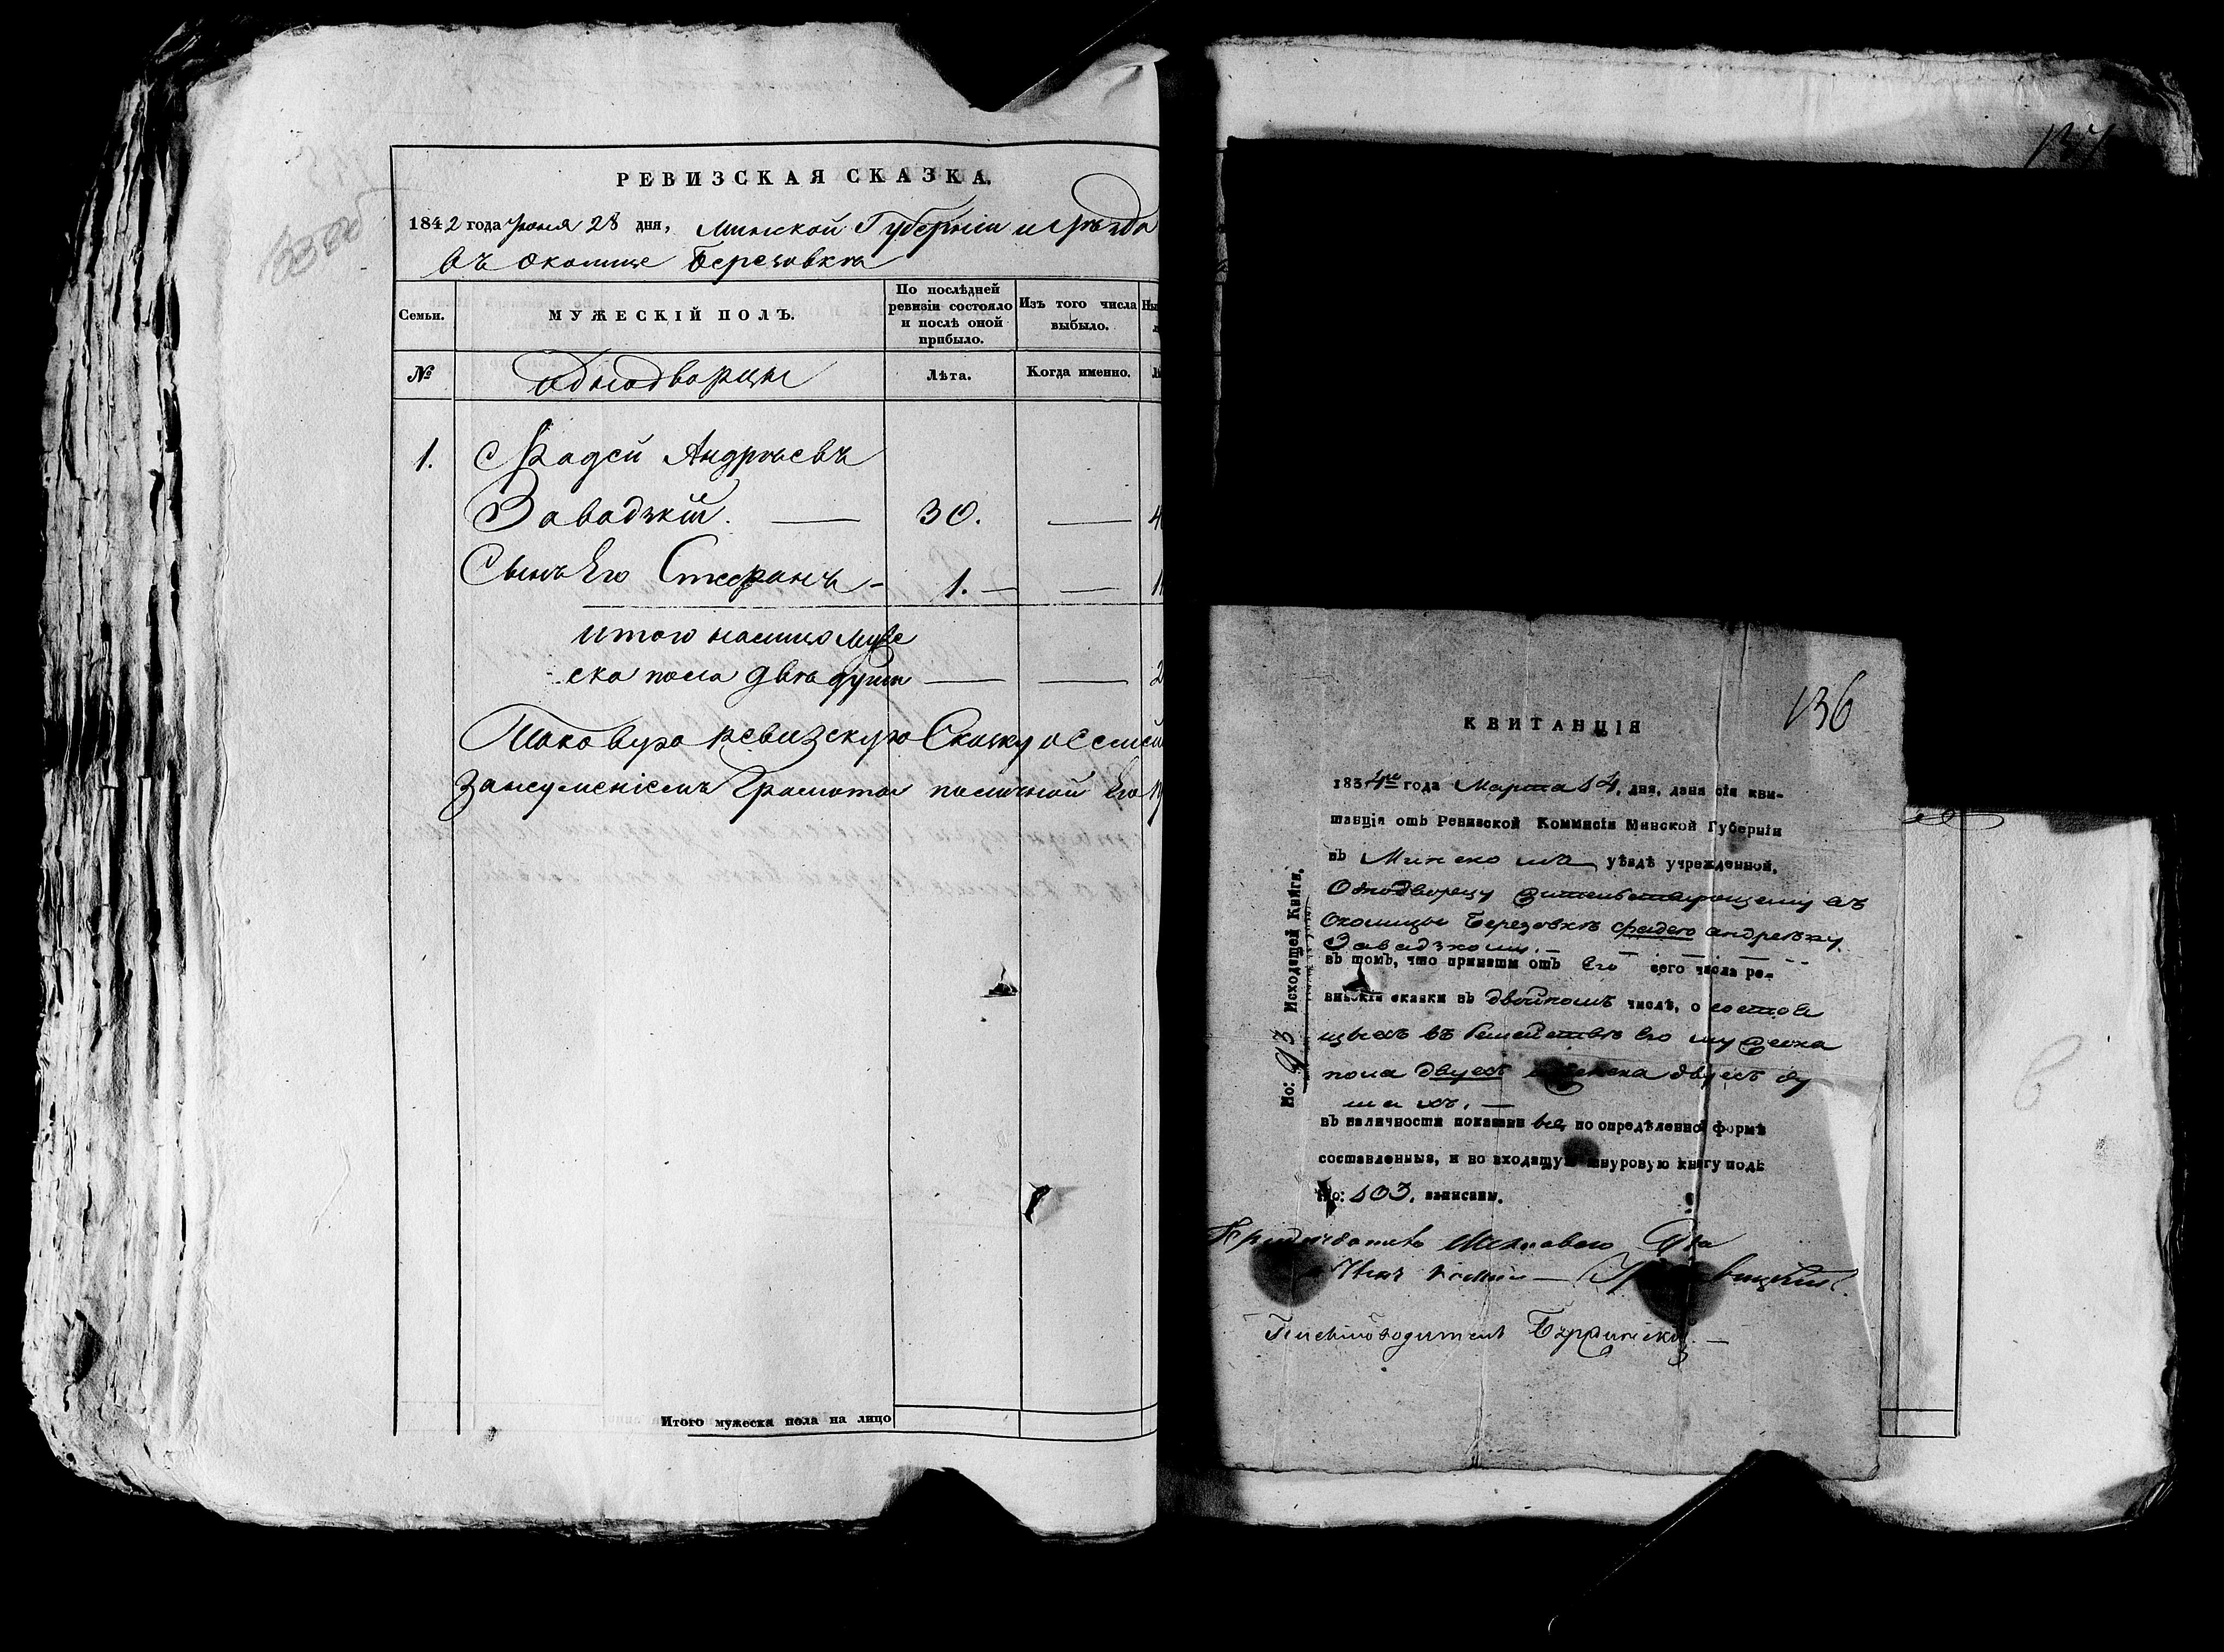 РЕВИЗСКАЯ СКАЗКА.
1842 года Июня 28 дня, Минской Губерніи и Уѣзда
въ околице Березовкѣ
Семьи.
МУЖЕСКІЙ ПОЛЪ.
По послѣдней ревизіи состояло и послѣ оной прибыло.
Изъ того числа выбыло.
№
однодворцы
Лѣта.
Когда именно.
1. Фадей Андреевъ
Завадзкій. — 30. —
Сынъ Его Стефанъ - 1. — —
итого налицо муже
ска пола двѣ души — — 2
Таковую ревизскую Сказку о Семей
занеуменіемъ Грамоты по личной Его
Итого мужеска пола на лицо
136
КВИТАНЦІЯ
1834го года Марта 14, дня, дана сія кви-
танція отъ Ревизской Коммисіи Минской Губерніи
въ Минско мъ уѣздѣ учрежденной,
Однодворцу Жительствующему въ
Околицы Березовкѣ Фадею Андрееву
Завадзкому. —
въ томъ, что приняты отъ Его сего числа ре-
визскія сказки въ двойномъ числѣ, о состоя
щыхъ въ Семействѣ Его мужеска
пола двухъ женска двухъ ду
шахъ. —
въ наличности показаны все, по опредѣленной формѣ
составленныя, и во входящую шнуровую книгу подъ
No: 103. записаны.
No: 93 Исходящей Книги.
Письмоводитель